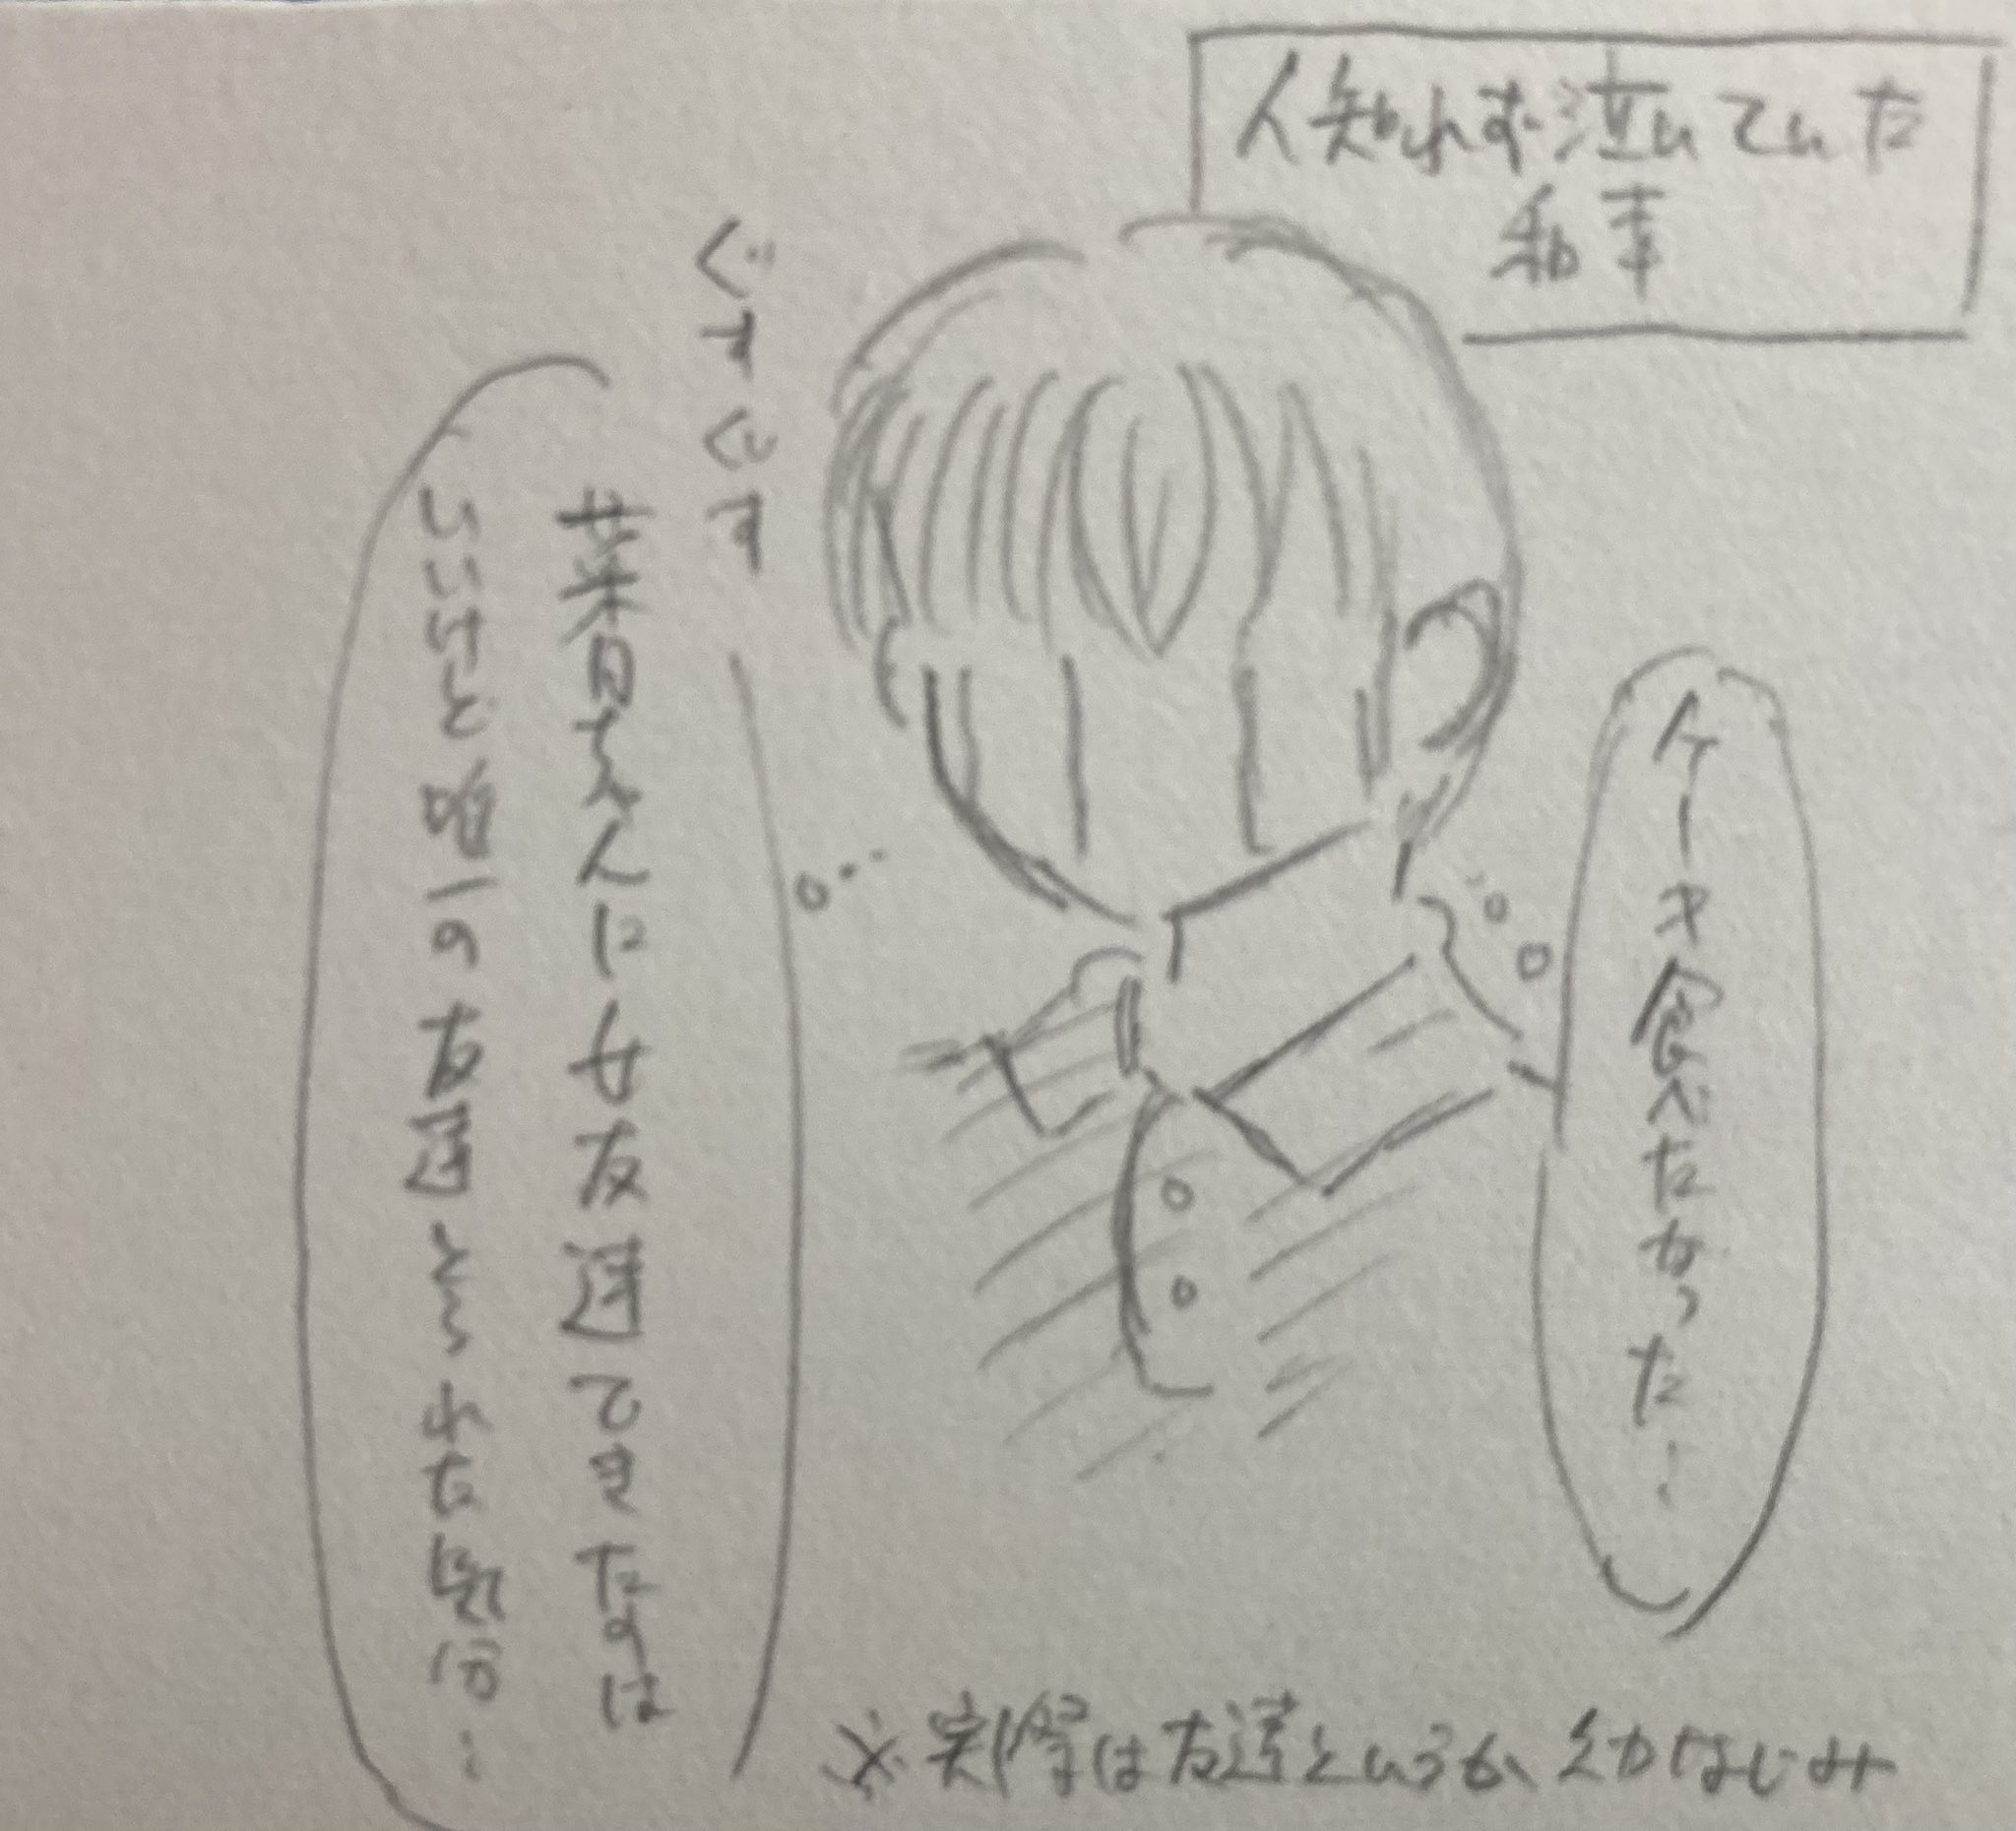 人知れず泣いていた
和幸
ケーキ食べたかった…
ぐすぐす
菜月ちゃんに女友達できたのは
いいけど唯一の友達とられた気分…
※実際は友達というか、幼なじみ